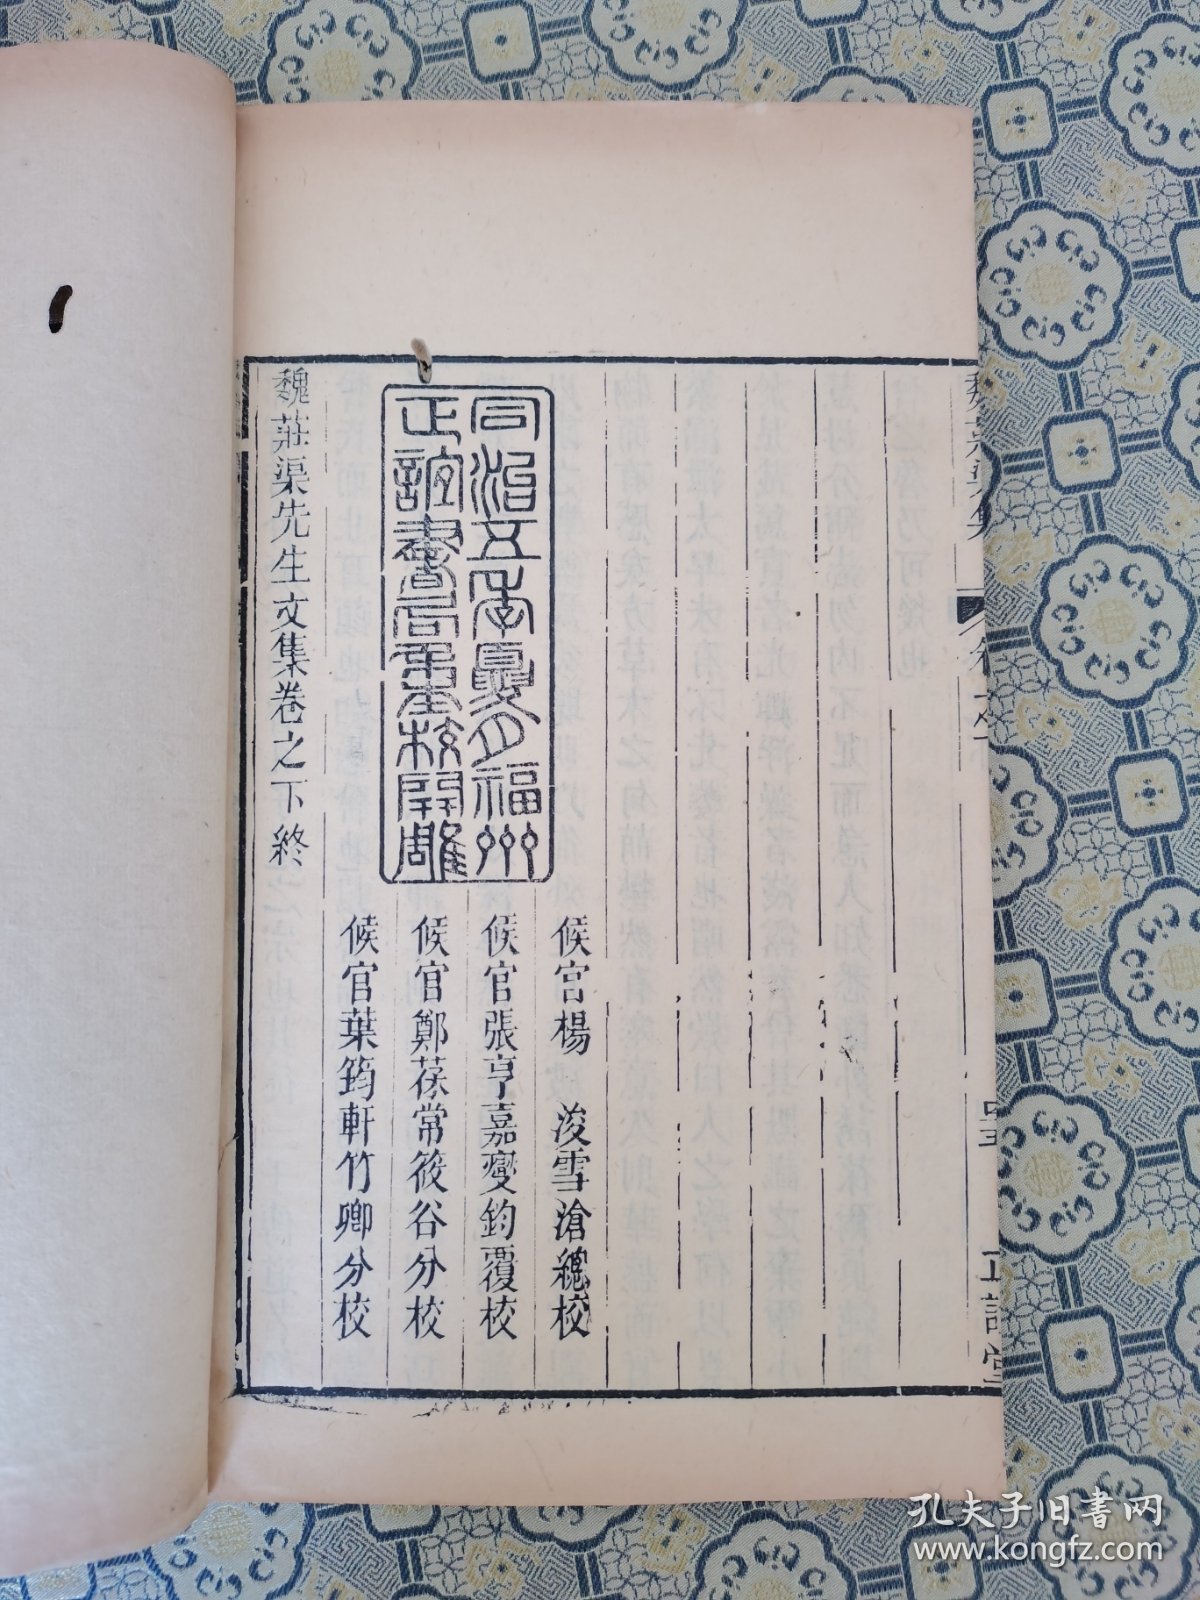 魏莊渠集
卷之下
正誼堂
候官楊　浚雪滄緫校
候官張亨嘉燮鈞覆校
候官鄭葆常筱谷分校
候官葉筠軒竹卿分校
同治五年夏月福州
正誼書局重校開雕
魏莊渠先生文集卷之下終
孔夫子旧書网
www.kongfz.com